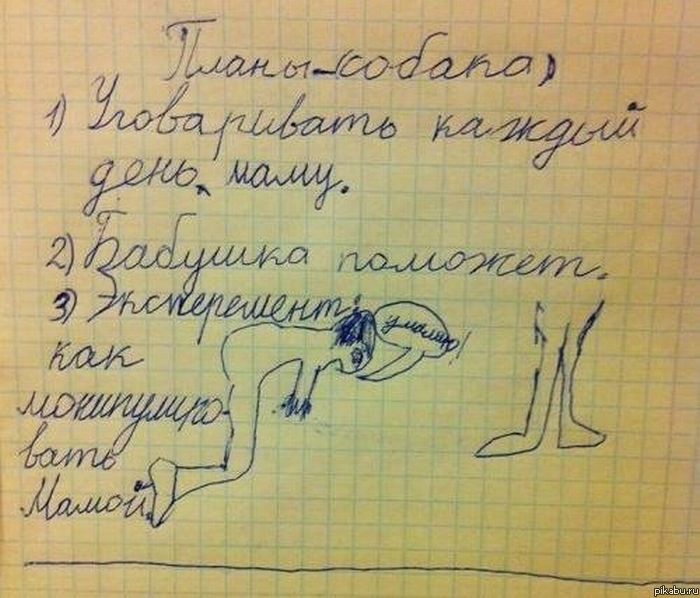 Планы-собака,
1) Уговаривать каждый
день маму.
2) Бабушка поможет.
3) Эксперемент:
умоляю!
как
монипулиро-
вать
Мамой.
pikabu.ru